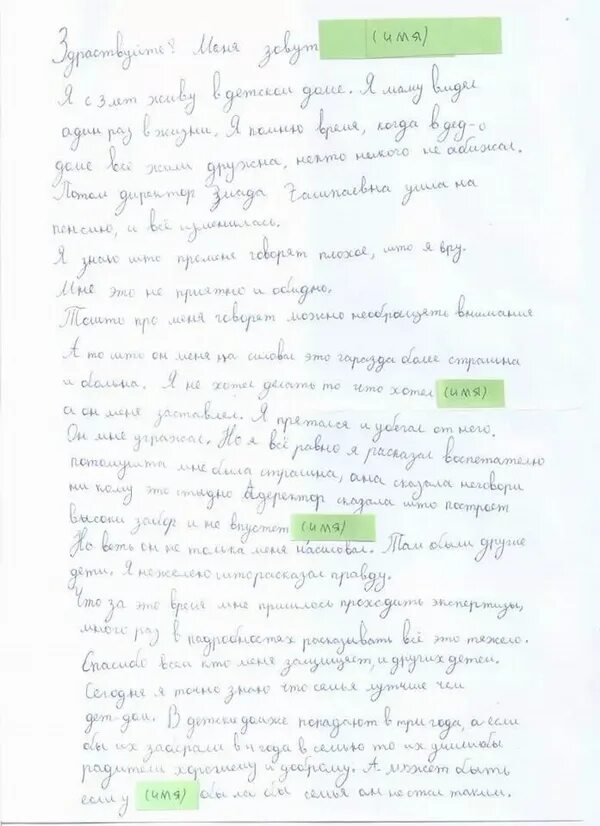 Здраствуйте! Меня зовут (имя)
Я с 3 лет живу в детском доме. Я маму видел
один раз в жизни. Я помню время, когда в дед-о
доме всё жили дружна, некто некого не абижал.
Потом директор Зиада ушла на
пенсию, и всё изменилась.
Я знаю што премене говорят плохое, што я вру.
Мне это не приятно и обидно.
Тошто про меня говорят можно необращять внимания
А то што он меня на силовал это гаразда более страшна
и больна. Я не хотел делать то что хотел (имя)
а он меня заставлел. Я прятался и убегал от него.
Он мне угражал. Но я всё равно я расказал воспетателю
потомушта мне была страшна, ана сказала неговори
ни кому это стыдно Адеректор сказала што построет
высоки забор и не впустет (имя)
Но веть он не толька меня насиловал. Там были другие
дети. Я нежелею шторасказал правду.
Что за это время мне пришлось проходить экспертизы,
много раз в падробностях расказывать всё это тяжело.
Спасибо всем кто меня защищяет, и других детей.
Сегодня я точно знаю что семья лутчше чем
дет-дом. В детски попадают в три года, а если
бы их забрали в 4 года в семью то их
радители хорошему и доброму. А может быть
если у (имя) была бы семья он не стал таким.